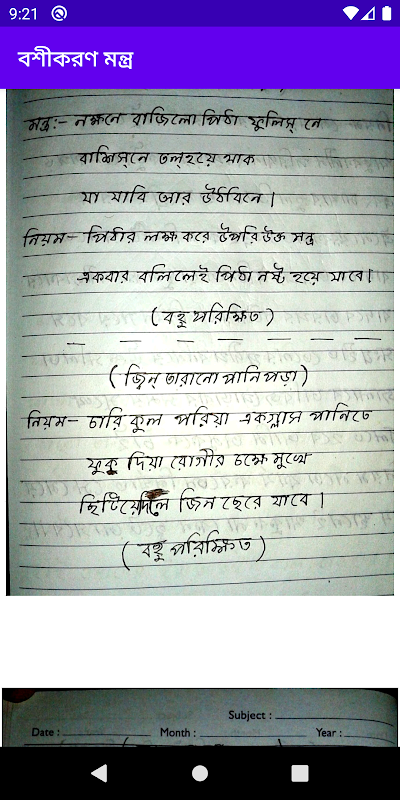 9:21
বশীকরণ মন্ত্র
মন্ত্র:- লক্ষনে রাজিলো পিঠা ফুলিস্ নে
বাশিস্‌নে তল্ হয়ে থাক
যা যাবি আর উঠবিনে।
নিয়ম- পিঠার লক্ষ করে উপরি উক্ত মন্ত্র
একবার বলিলেই পিঠা নষ্ট হয়ে যাবে।
(বহু পরিক্ষিত)
(জ্বিন তারানো পানি পড়া)
নিয়ম- চারি কুল পরিয়া একগ্লাস পানিতে
ফুক দিয়া রোগীর চক্ষে মুখে
ছিটিয়ে দিলে জিন ছেরে যাবে।
(বহু পরিক্ষিত)
Subject :
Date : Month : Year :